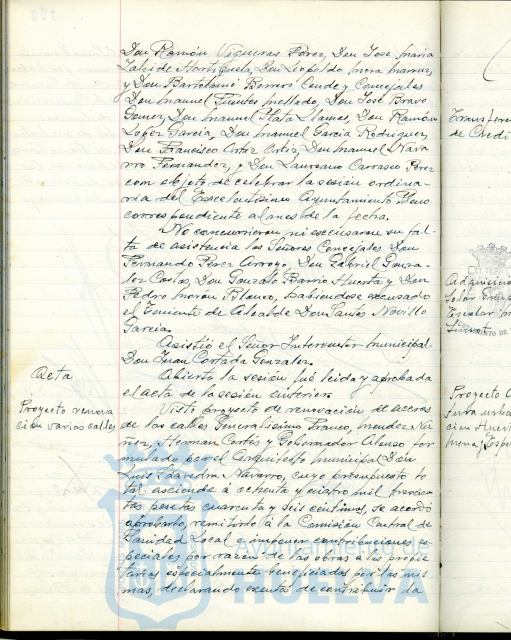 Don Ramón Vigueras Perez, Don José Maria
Don Leopoldo Mora
y Don Bartolomé Borrero Conde y Concejales
Don Manuel Fuentes Mellado, Don José Bravo
Gomez, Don Manuel Plata Llamas, Don Ramón
Lopez Garcia, Don Manuel Garcia Rodriguez,
Don Francisco Ortiz Ortiz, Don Manuel Nava
rro Fernandez, y Don Laureano Carrasco Perez
con objeto de celebrar la sesión ordina-
ria del Excelentisimo Ayuntamiento Pleno
correspondiente al mes de la fecha.
No concurrieron ni excusaron su fal-
ta de asistencia los Señores Concejales Don
Fernando Perez Arroyo, Don Gabriel Gonza-
lez Don Gonzalo Barrio Huerta y Don
Pedro Morón Blanco, habiendose excusado
el Teniente de Alcalde Don Santos
Garcia.
Asistió el Señor Interventor Municipal
Don Juan Cortada Gonzalez.
Acta
Abierta la sesión fué leida y aprobada
el acta de la sesión anterior.
Proyecto renova
ción varias calles
Visto proyecto de renovación de aceras
de las calles Generalisimo Franco, Mendez Nú
ñez, Hernan Cortés y Gobernador Alonso for
mulado por el Arquitecto municipal Don
Luis Saavedra Navarro, cuyo presupuesto to
tal asciende á ochenta y cuatro mil trescien
tas pesetas cuarenta y seis centimos, se acordó
aprobarlo, remitirlo á la Comisión Central de
Sanidad Local e imponer contribuciones es
peciales por razón de las obras a los propie
tarios especialmente beneficiados por las mis
mas, declarando exentas de contribuir la
Transferen
de Crédi
Adquisición
Solar Grupo
Escolar
Proyecto
ción Huert
Ayuntamiento de
HUELVA